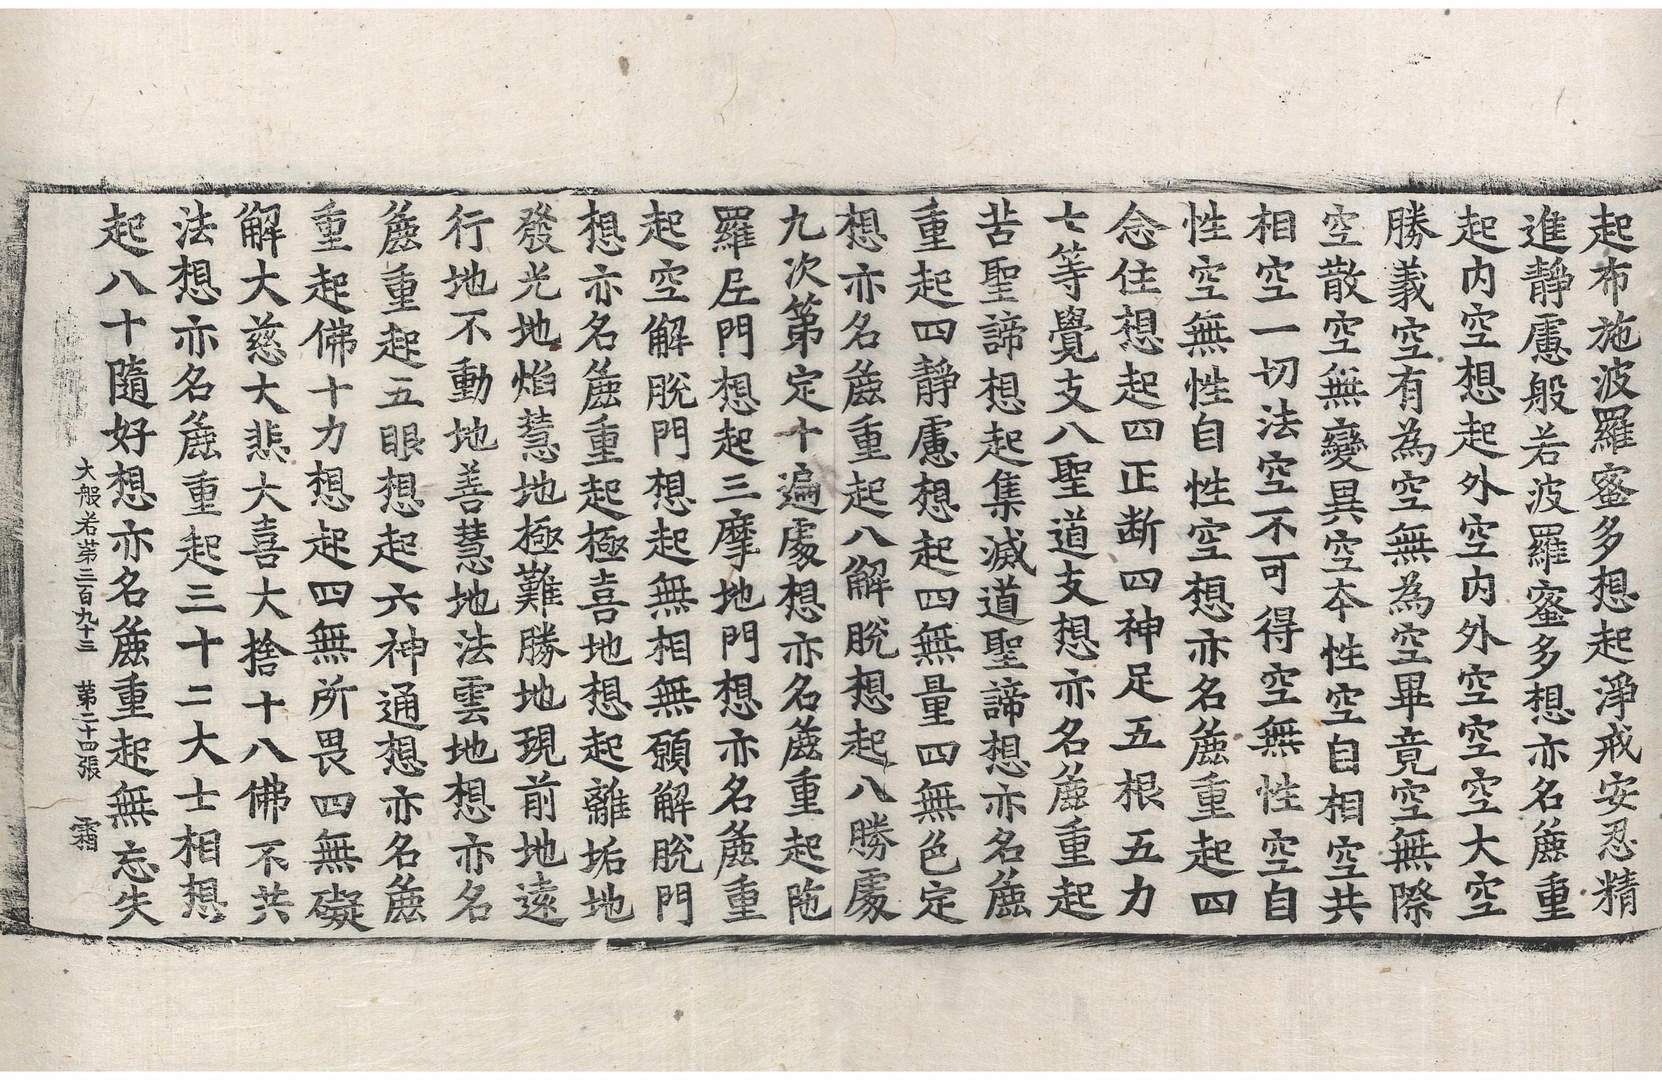 起布施波羅蜜多想起淨戒安忍精
進靜慮般若波羅蜜多想亦名麁重
起内空想起外空内外空空空大空
勝義空有為空無為空畢竟空無際
空散空無變異空本性空自相空共
相空一切法空不可得空無性空自
性空無性自性空想亦名麁重起四
念住想起四正断四神足五根五力
七等覺支八聖道支想亦名麁重起
苦聖諦想起集滅道聖諦想亦名麁
重起四靜慮想起四無量四無色定
想亦名麁重起八解脫想起八勝處
九次第定十遍處想亦名麁重起陁
羅尼門想起三摩地門想亦名麁重
起空解脫門想起無相無願解脫門
想亦名麁重起極喜地想起離垢地
發光地焰慧地極難勝地現前地遠
行地不動地善慧地法雲地想亦名
麁重起五眼想起六神通想亦名麁
重起佛十力想起四無所畏四無礙
解大慈大悲大喜大捨十八佛不共
法想亦名麁重起三十二大士相想
起八十隨好想亦名麁重起無忘失
大般若第三百九十三 第二十四張 霜